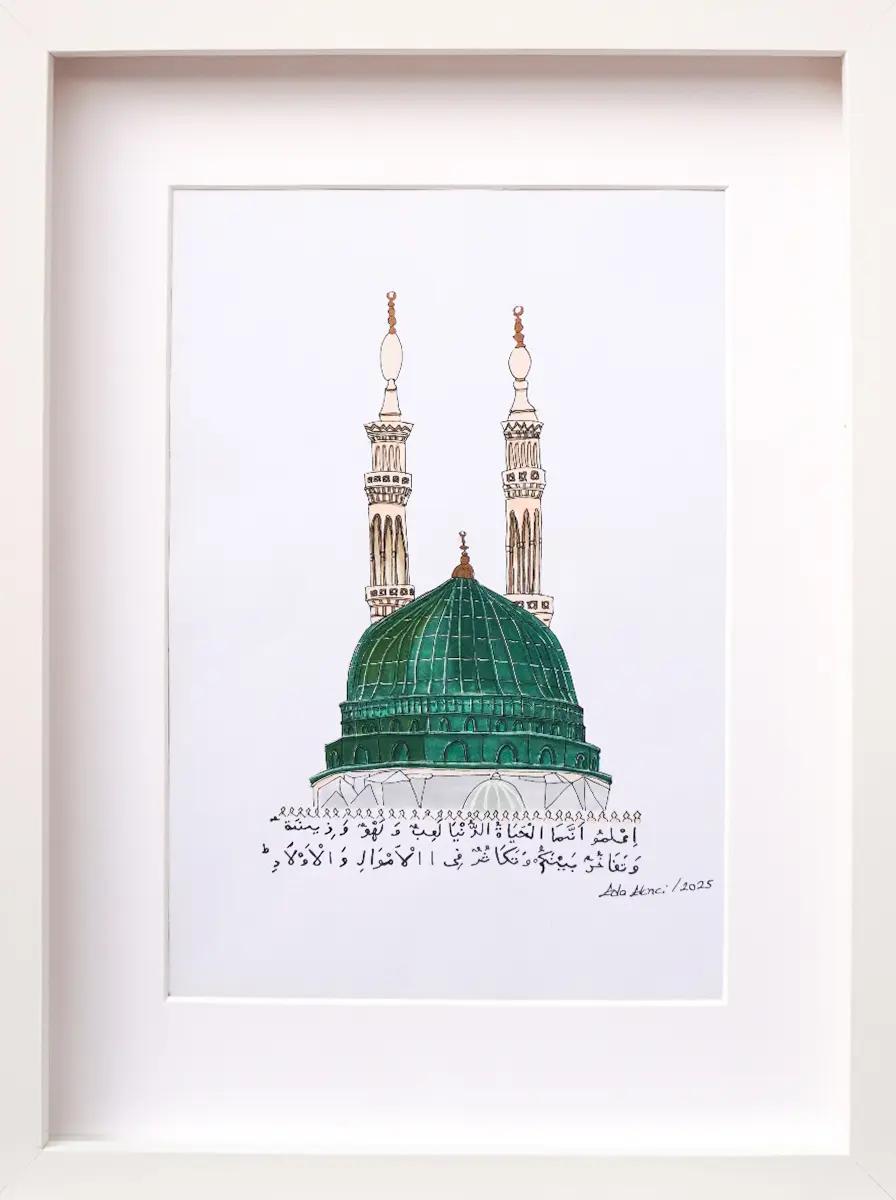 اِعْلَمُو اَنَّمَا الْحَيَاةُ الدُّنْيَا لَعِبٌ وَ لَهْوٌ وَ زِينَةٌ
وَ تَفَاخُرٌ بَيْنَكُمْ وَ تَكَاثُرٌ فِى ا الْاَمْوَالِ وَ الْاَوْلَادِ ط
/2025